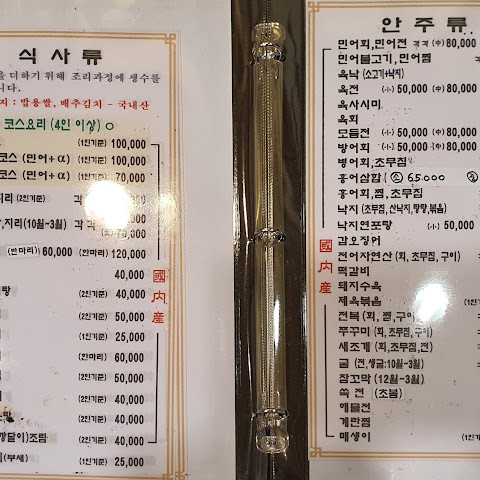 식사류
을 더하기 위해 조리과정에 생수를
니다.
지 : 밥용쌀, 배추김치 - 국내산
코스요리 (4인 이상)
(1인기준) 100,000
코스 (민어+α) (1인기준) 100,000
코스 (민어+α) (1인기준) 70,000
지리 (2인
,지리(10월~3월) 각
(반마리) 60,000 (한마리) 120,000
40,000
탕 (2인기준) 40,000
(2인기준) 50,000
(1인기준) 25,000
(한마리) 60,000
(2인기준) 50,000
(2인기준) 40,000
(2인기준) 40,000
깡달이)조림 (2인기준) 40,000
(부세) (1인기준) 25,000
國內産
안주류
민어회,민어전 각각(中)80,000
민어불고기, 민어찜
육낙 (소고기+낙지)
육전 (小) 50,000 (中) 80,000
육사시미
육회
모듬전 (小) 50,000 (中) 80,000
방어회 (小) 50,000 (中) 80,000
병어회,초무침
홍어삼합 (소) 65,000
홍어회, 찜, 초무침
낙지 (초무침,산낙지,탕탕,볶음)
낙지연포탕 (小) 50,000
갑오징어
전어자연산 (회, 초무침, 구이)
떡갈비
돼지수육
제육볶음 (1인기
전복 (회, 찜, 구이)
쭈꾸미 (회, 초무침, 구이)
새조개 (회,초무침,전)
굴 (전,생굴:10월~3월)
참꼬막 (12월~3월)
쑥 전 (초봄)
해물전
계란찜
매생이 (1인기
國內産